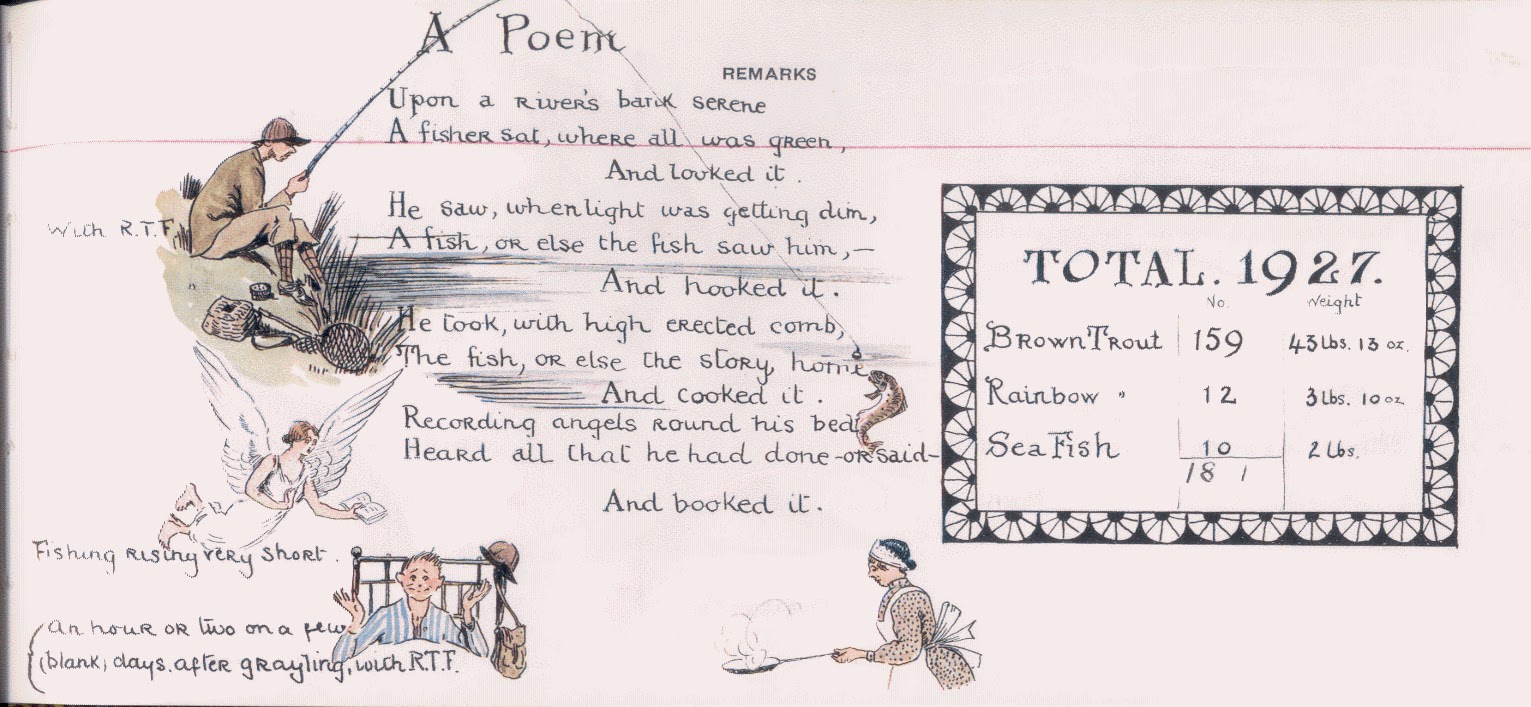 A Poem
REMARKS
Upon a river's bank serene
A fisher sat, where all was green,
And looked it.
He saw, when light was getting dim,
A fish, or else the fish saw him,—
And hooked it.
He took, with high erected comb,
The fish, or else the story, home
And cooked it.
Recording angels round his bed
Heard all that he had done -or said-
And booked it.
With R.T.F.
Fishing rising very short.
(An hour or two on a few
(blank) days. after grayling, with R.T.F.
TOTAL. 1927.
No. Weight
Brown Trout 159 43 lbs. 13 oz.
Rainbow " 12 3 lbs. 10 oz
Sea Fish 10 2 lbs.
181